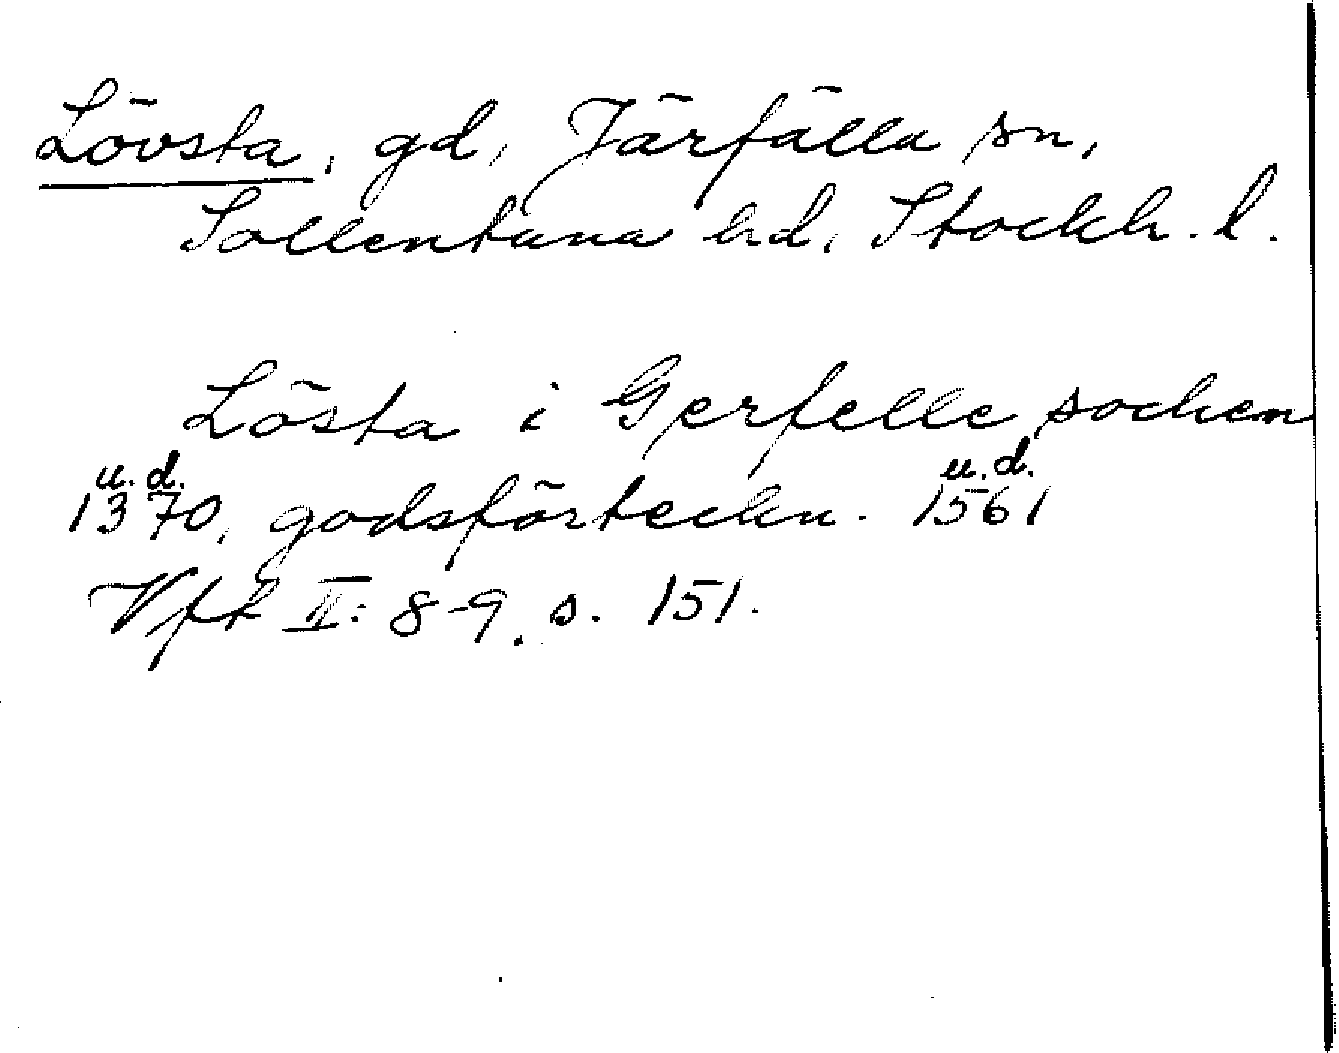 Lövsta, gd, Järfälla sn,
Sollentuna hd, Stockh. l.
Lösta i Gerfelle sochen
u. d. u. d.
1370, godsförteckn. 1561
Vft II: 8-9, s. 151.